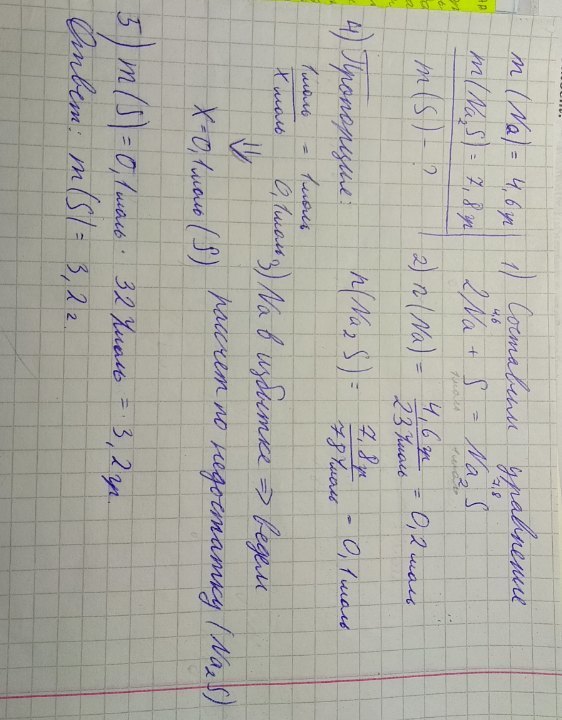 m (Na) = 4,6 гр
m(Na₂S) = 7,8 гр
m(S) - ?
1) Составим уравнение
4,6 7,8
2Na + S = Na₂S
1моль 1моль
2) n(Na) = 4,6 гр / 23 г/моль = 0,2 моль
n(Na₂S) = 7,8 гр / 78 г/моль = 0,1 моль
3) Na в избытке => ведем
рассчет по недостатку (Na₂S)
4) Пропорция:
1моль / x моль = 1моль / 0,1моль
⇓
X = 0,1 моль (S)
5) m(S) = 0,1 моль · 32 г/моль = 3,2 гр.
Ответ: m(S) = 3,2 г.